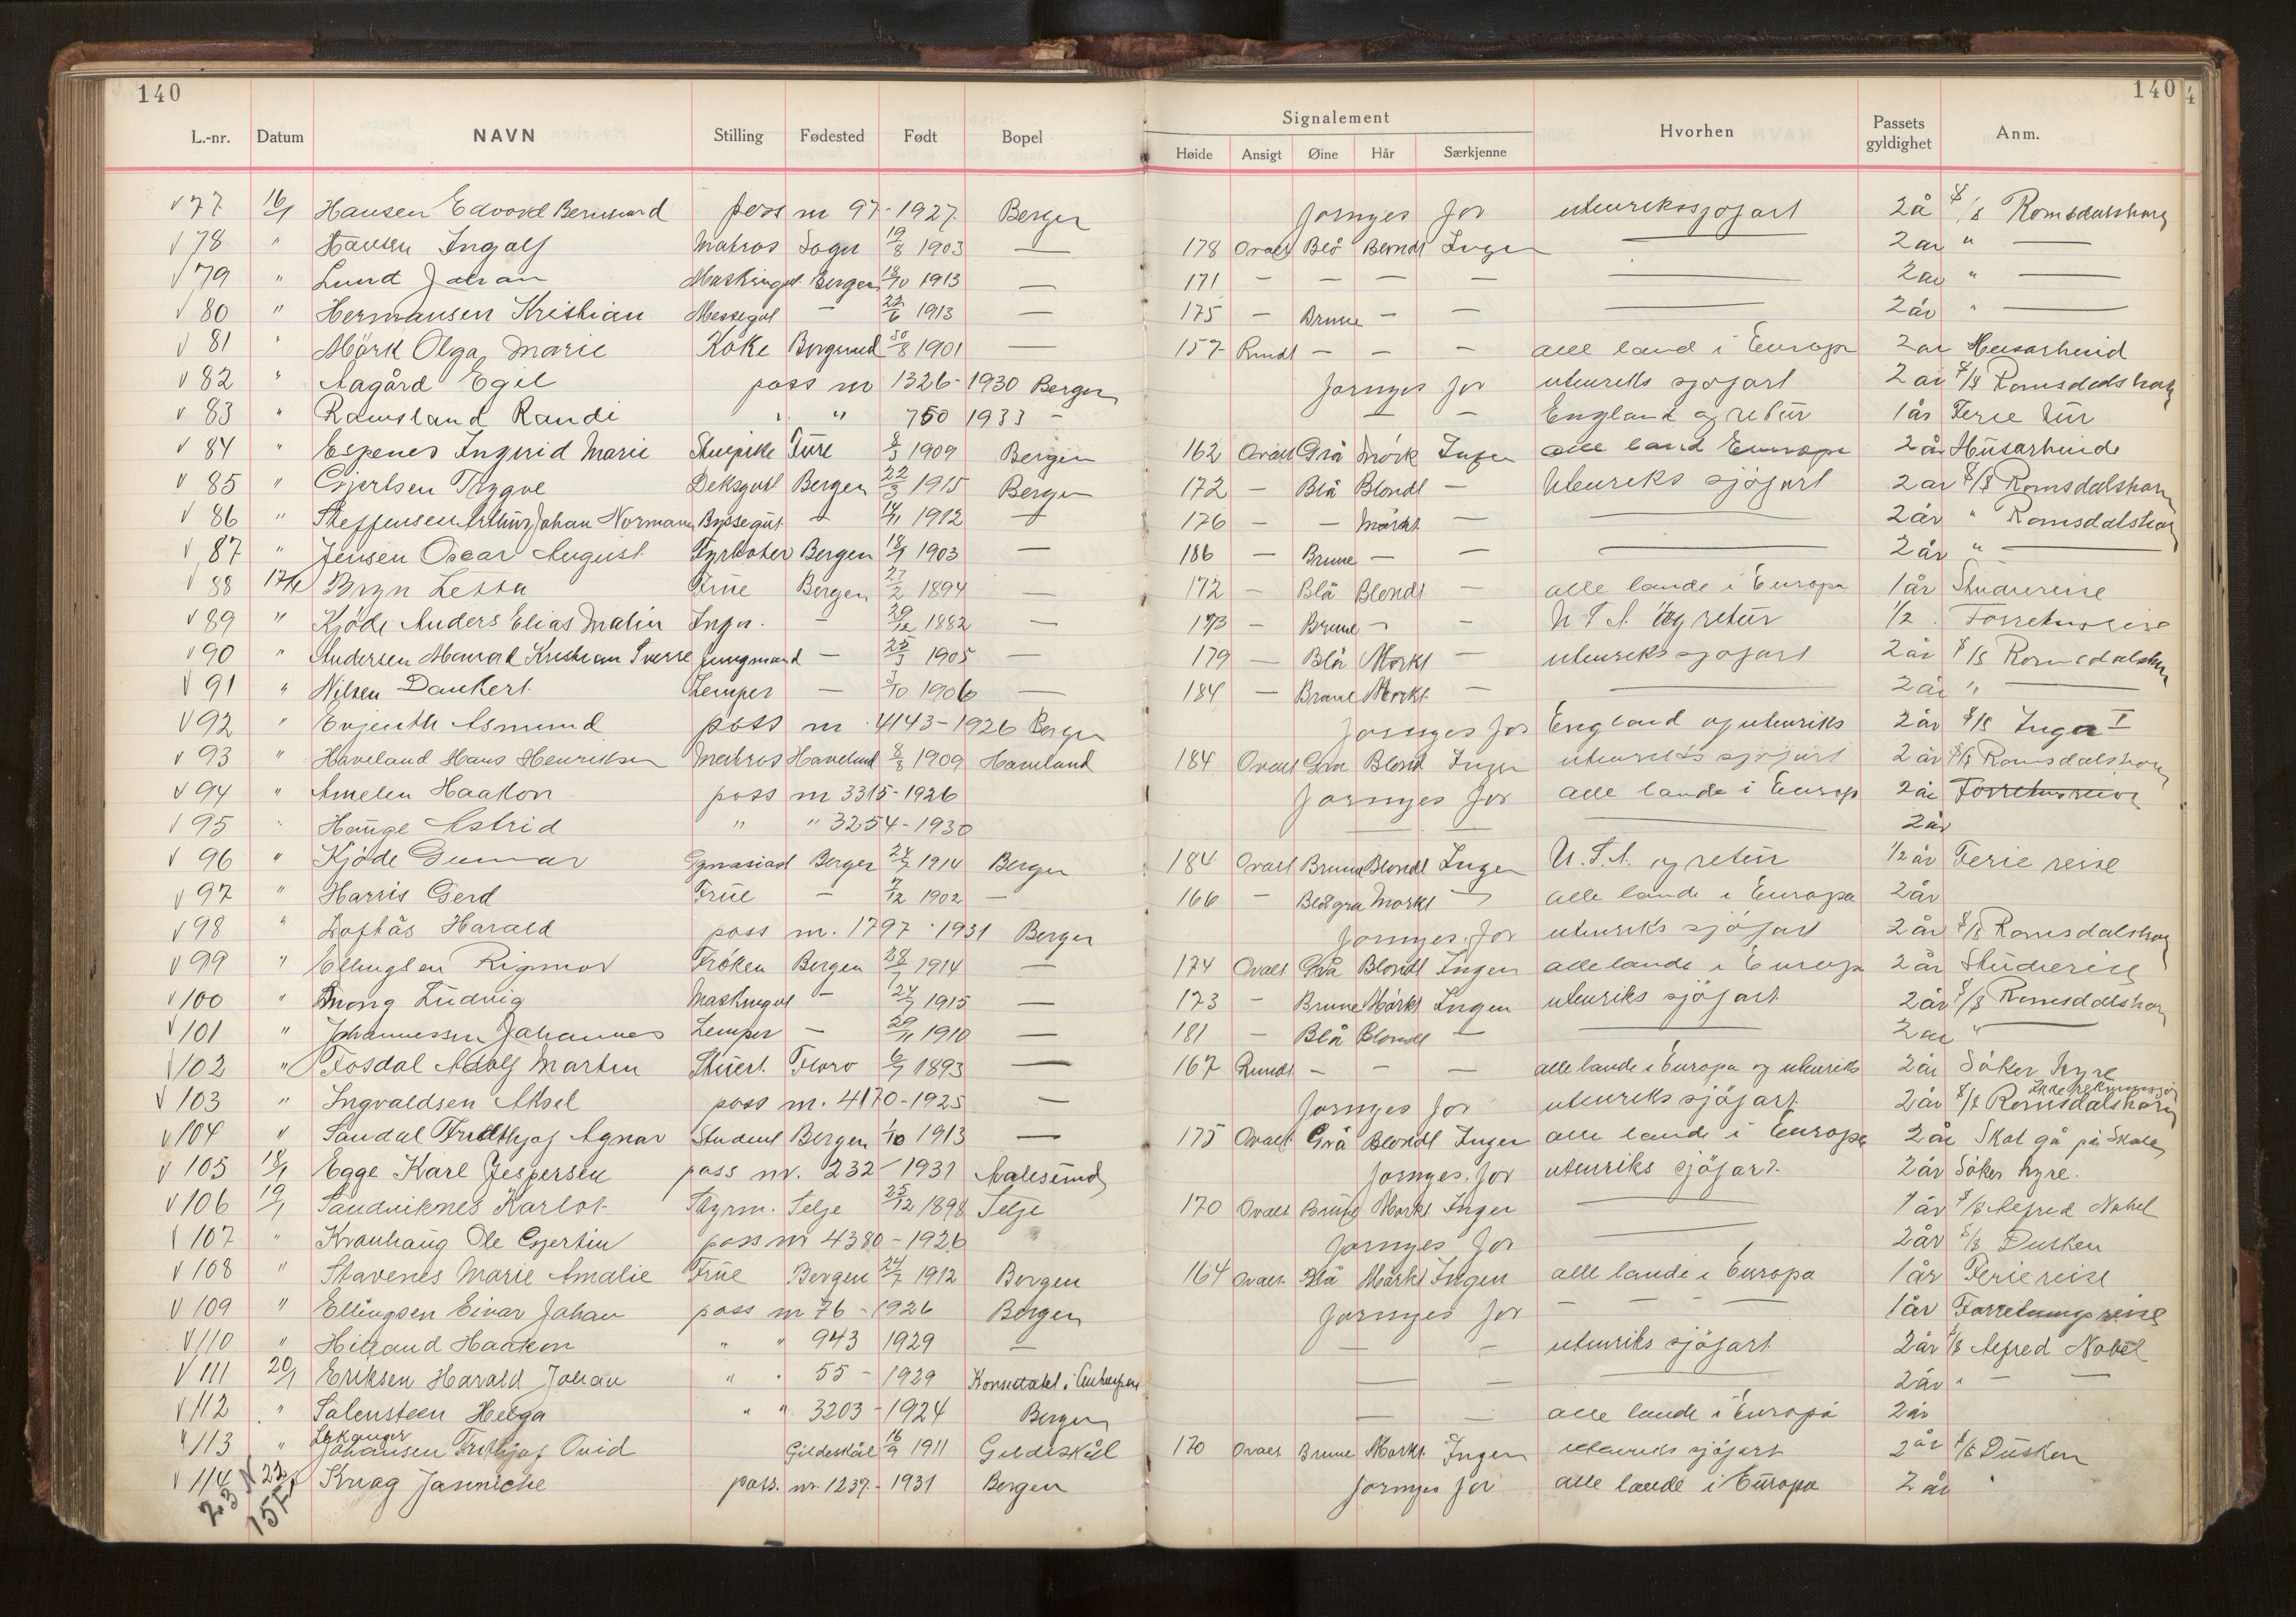 140
140
4
L.-nr. Datum NAVN Stilling Fødested Født Bopel Signalement Hvorhen Passets gyldighet Anm.
Høide Ansigt Øine Hår Særkjenne
77 16/1 Hansen Edvard Bernhard pass nr 97-1927 Bergen fornyes for utenrikssjøfart 2 å S/S Romsdalshorn
78 " Hansen Ingolf Matros Sogn 19/8 1903 — 178 Ovalt Blå Blondt Ingen — 2 år " —
79 " Lund Johan Maskingut Bergen 18/10 1913 — 171 — — — — — 2 år " —
80 " Hermansen Kristian Messegut — 22/6 1913 — 175 — Brune — — — 2 år " —
81 " Mörk Olga Marie Koke Borgund 30/8 1901 — 157 Rundt — — — alle land i Europa 2 år Husarbeid
82 " Aagård Egil pass nr 1326-1930 Bergen fornyes for utenriks sjøfart 2 år S/S Romsdalshorn
83 " Ramsland Randi " " 750 1933 — — — England og retur 1 år Ferie tur
84 " Espenes Ingrid Marie Ture 8/3 1909 Bergen 162 Ovalt Grå Mörk Ingen alle land Europa 2 år Husarbeide
85 " Gjertsen Trygve Deksgut Bergen 22/3 1915 Bergen 172 — Blå Blondt — Utenriks sjöfart 2 år S/S Romsdalshorn
86 " Steffensen Arthur Johan Normann Byssegut — 14/11 1912 — 176 — — Mörkt — — 2 år " Romsdalshorn
87 " Jensen Oscar August Fyrböter Bergen 18/9 1903 — 186 — Brune — — — 2 år " —
88 17/1 Bryn Letta Frue Bergen 27/2 1894 — 172 — Blå Blondt — alle lande i Europa 1 år Studiereise
89 " Kjöde Anders Elias Malin Ingn. — 29/12 1882 — 173 — Brune — — U.S.A. og retur 1/2 Forretnreise
90 " Andersen Konrad Kristian Sverre Jungmand — 25/3 1905 — 179 — Blå Mörkt — utenriks sjøfart 2 år S/S Romsdalshorn
91 " Nilsen Dankert Lemper — 3/10 1906 — 184 — Brune Mörkt — — 2 år " —
92 " Evjenth Asmund pass nr 4143-1926 Bergen fornyes for England og utenriks 2 år S/S Inger I
93 " Haveland Hans Henriksen Matros Haveland 8/8 1909 Haveland 184 Ovalt Grå Blond Ingen utenriks sjöfart 2 år S/S Romsdalshorn
94 " Amelen Haakon pass nr 3315-1926 fornyes for alle lande i Europa 2 år Forretnreise
95 " Hauge Astrid " " 3254-1930 — — — 2 år
96 " Kjöde Gunnar Gymnasiast Bergen 24/7 1914 Bergen 184 Ovalt Brune Blondt Ingen U.S.A. og retur 1/2 år Ferie reise
97 " Harris Gerd Frue — 7/12 1902 — 166 — Blågrå Mörkt — alle lande i Europa 2 år
98 " Loftås Harald pass nr. 1797-1931 Bergen fornyes for utenriks sjöfart 2 år S/S Romsdalshorn
99 " Ellingsen Rigmor Fröken Bergen 28/1 1914 — 174 Ovalt Grå Blondt Ingen alle lande i Europa 2 år Studiereise
100 " Ludvig Maskingut — 24/7 1915 — 173 — Brune Mörkt Ingen utenriks sjöfart 2 år S/S Romsdalshorn
101 " Johannessen Johannes Lemper — 20/11 1910 — 181 — Blå Blondt — — 2 år " —
102 " Frosdal Adolf Martin Stuert Floro 6/7 1893 — 167 Rundt — — — alle lande i Europa og utenriks 2 år Söker hyre
103 " Ingvaldsen Aksel pass nr. 4170-1925 — fornyes for utenriks sjöfart 2 år S/S Romsdalshorn
104 " Sandal Fridthjof Agnar Student Bergen 1/10 1913 — 175 Ovalt Grå Blondt Ingen alle lande i Europa 2 år Skal gå på Skole
105 18/1 Egge Karl Jespersen pass nr. 232-1931 Aalesund fornyes for utenriks sjöfart 2 år Söker hyre.
106 19/1 Sandviknes Karlot Styrm. Selje 25/12 1898 Selje 170 Ovalt Brune Mörkt Ingen — 1 år S/S Alfred Nobel
107 " Kronhaug Ole Gjertin pass nr 4380-1926 " fornyes for — 2 år S/S Dusken
108 " Stavenes Marie Amalie Frue Bergen 24/7 1912 Bergen 164 Ovalt Blå Mörkt Ingen alle lande i Europa 1 år Feriereise
109 " Ellingsen Einar Johan pass nr 76-1926 Bergen fornyes for — — — 1 år Forretningsreise
110 " Hilland Haakon " " 943 1929 — — — utenriks sjöfart 2 år S/S Alfred Nobel
111 20/1 Eriksen Harald Johan " " 55-1929 Konsulatet i Antwerpen — — — 2 år " — —
112 " Salensteen Helga " " 3203-1924 Bergen — — alle lande i Europa 2 år
Lekanger
113 " Johansen Fridthjof Ovid Gildeskål 16/9 1911 Gildeskål 170 Ovalt Brune Mörkt Ingen utenriks sjöfart 2 år S/S Dusken
114 Knag Jannicke pass. nr. 1237-1931 Bergen fornyes for alle lande i Europa 2 år
23 N 22
15 F